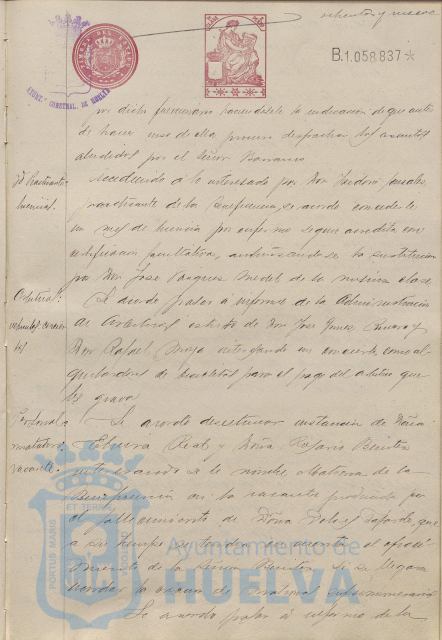 B.1.058.837*
AYUNT. CONSTNAL. DE HUELVA
por dicho funcionario haciéndosele la indicación de que antes
de hacer uso de ella, procure despachar los asuntos
aludidos por el Señor
Id Practicante
licencia.
Accediendo á lo interesado por Don Isidoro
practicante de la Beneficencia, se acordó concederle
un mes de licencia por enfermo según acredita con
certificación facultativa, autorizándose la sustitución
por Don José Vazquez Medel de la misma clase
Arbitrios:
Se acordó pasar á informe de la Administración
de Arbitrios, escrito de Don José
Don Rafael solicitando un concierto como al-
quiladores de bicicletas para el pago del arbitrio que
les grava
Personal:
matrona
vacante.
Se acordó desestimar instancia de Doña
Real y Doña Rosario Benítez
interesando se le nombre Matrona de la
Beneficencia en la vacante producida por
el fallecimiento de Doña Dolores que
a su tiempo se tendrá en cuenta el ofreci-
miento de la Señora Benítez, si se llegara
Se acordó pasar á informe de la
PORTUS MARIS ET TERRE
Ayuntamiento de
HUELVA